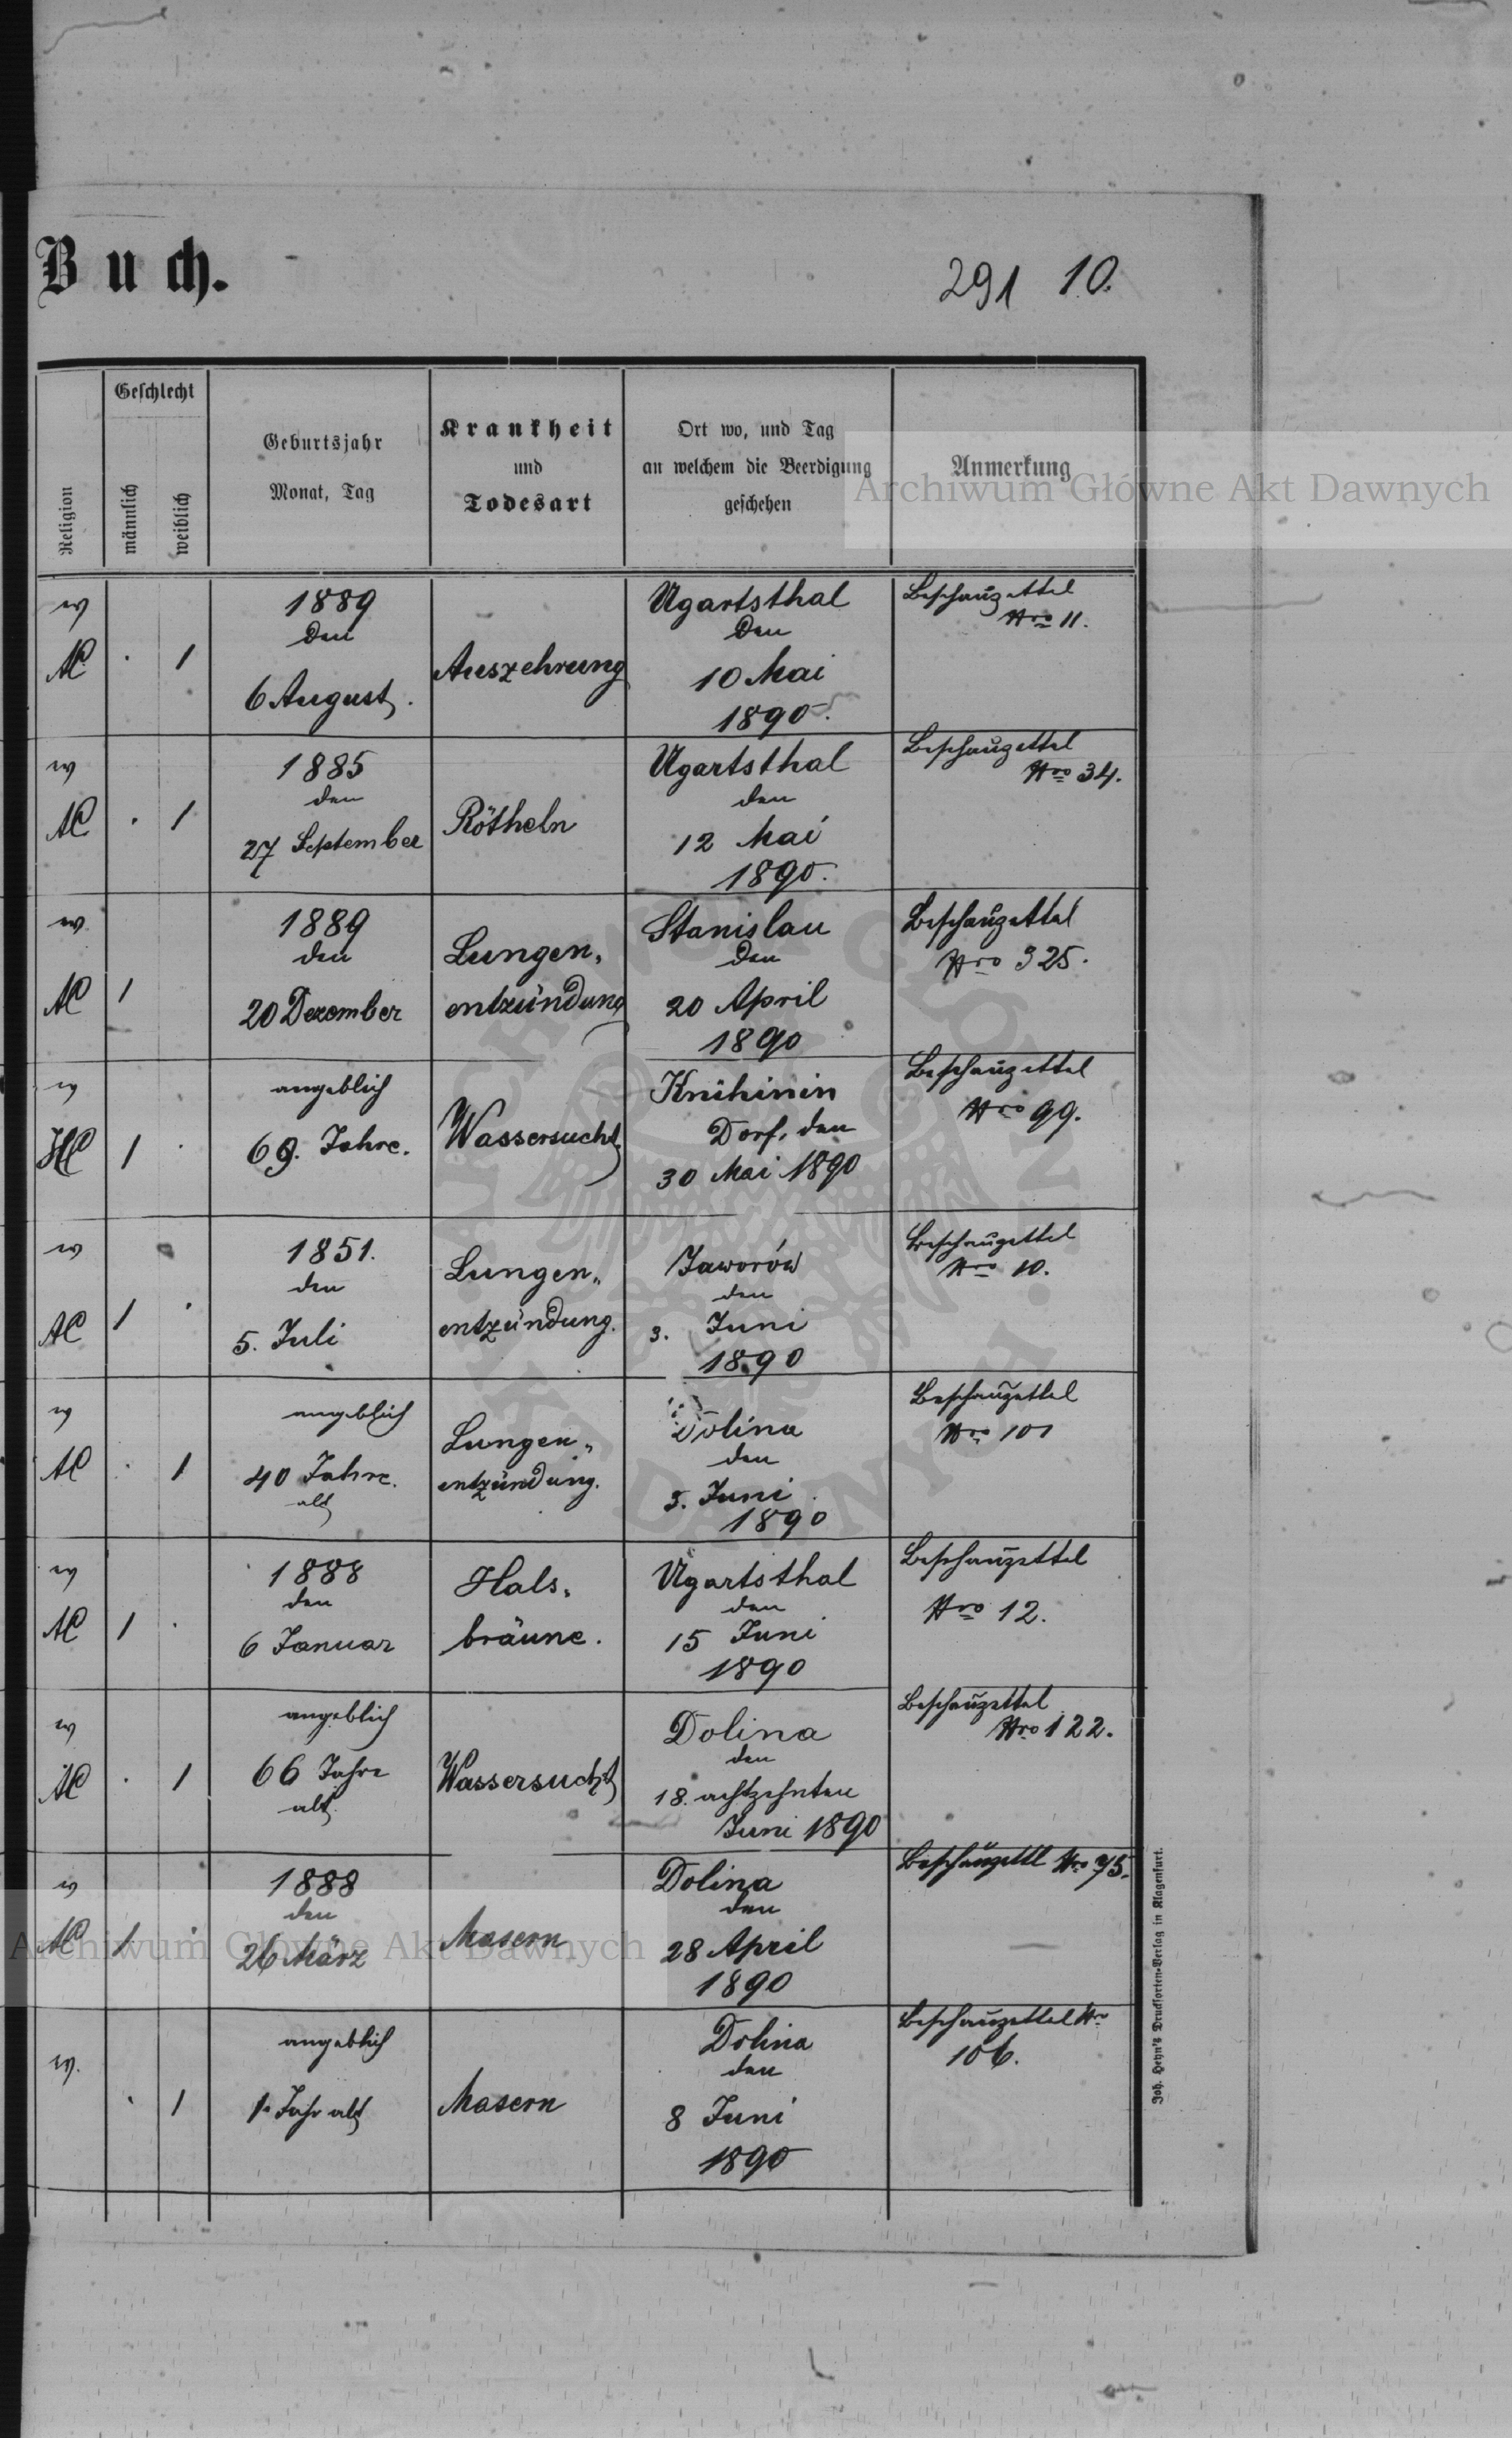 Buch.
291 10.
Religion
Geschlecht
männlich
weiblich
Geburtsjahr
Monat, Tag
Krankheit
und
Todesart
Ort wo, und Tag
an welchem die Beerdigung
geschehen
Anmerkung
Archiwum Główne Akt Dawnych
AC
1
1889
den
6 August.
Auszehrung
Ugartsthal
den
10 Mai
1890.
Beschauzettel
Nro 11.
AC
1
1885
den
27 September
Rötheln
Ugartsthal
den
12 Mai
1890.
Beschauzettel
Nro 34.
AC
1
1889
den
20 Dezember
Lungen-
entzündung
Stanislau
den
20 April
1890
Beschauzettel
Nro 325.
HC
1
angeblich
69. Jahre.
Wassersucht
Knihinin
Dorf, den
30 Mai 1890
Beschauzettel
Nro 99.
AC
1
1851.
den
5. Juli
Lungen-
entzündung.
Jaworów
den
3. Juni
1890
Beschauzettel
Nro 10.
AC
1
angeblich
40 Jahre.
alt
Lungen-
entzündung.
Dolina
den
5. Juni
1890
Beschauzettel
Nro 101
AC
1
1888
den
6 Januar
Hals-
bräune.
Ugartsthal
den
15 Juni
1890
Beschauzettel
Nro 12.
AC
1
angeblich
66 Jahre
alt.
Wassersucht
Dolina
den
18. achtzehnten
Juni 1890
Beschauzettel
Nro 122.
AC
1
1888
den
26 März
Masern
Dolina
den
28 April
1890
Beschauzettl Nro 75.
Archiwum Główne Akt Dawnych
1
angeblich
1 Jahr alt
Masern
Dolina
den
8 Juni
1890
Beschauzettel Nro
106.
Joh. Heyn's Drucksorten-Verlag in Klagenfurt.
ARCHIWUM GŁÓWNE AKT DAWNYCH